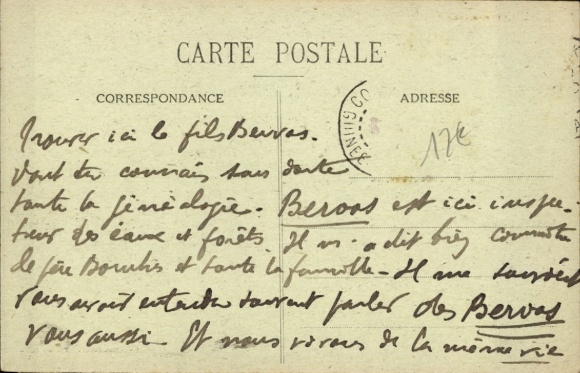 CARTE POSTALE
CORRESPONDANCE
ADRESSE
GUINÉE
17€
Trouver ici le fils Bervas.
dont tu connais sans doute
toute la généalogie. Bervas est ici inspec-
teur des eaux et forêts. Il m'a dit bien connaître
le père et toute la famille - Il me
vous avoir entendu souvent parler des Bervas
vous aussi. Et nous vivons de la même vie